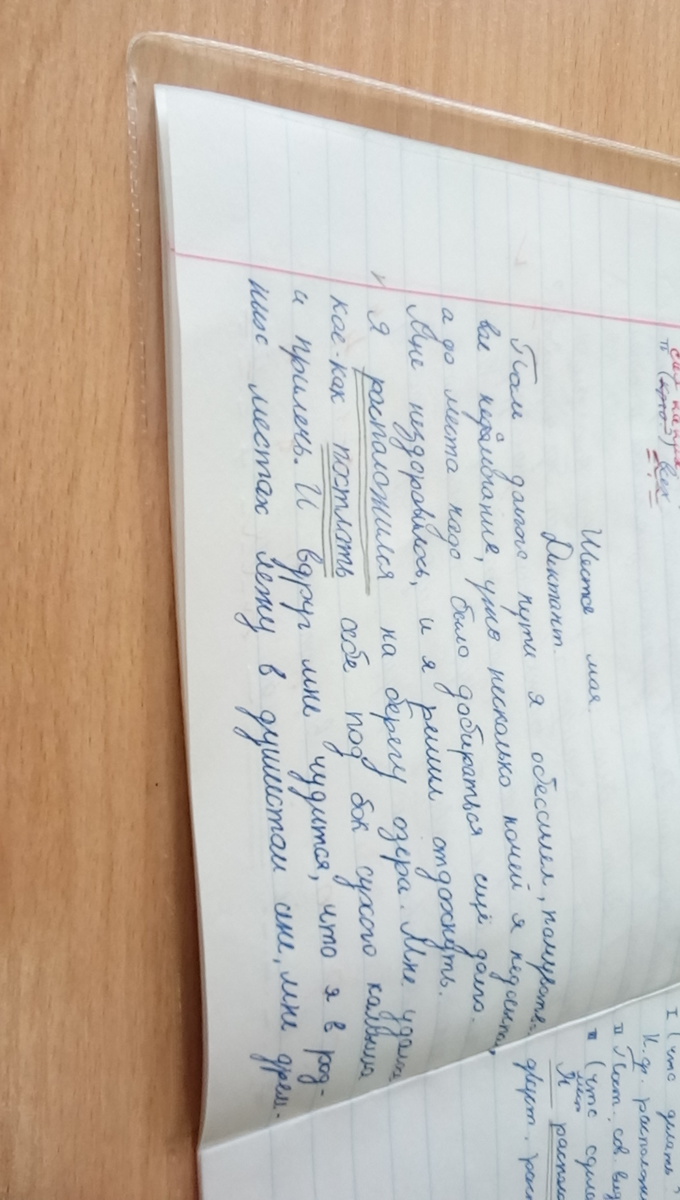 Шестое мая.
Диктант.
После долгого пути я обессилел, почувство-
вал недомогание, уже несколько ночей я недосыпал,
а до места надо было добираться ещё долго.
Мне нездоровилось, и я решил отдохнуть.
Я расположился на берегу озера. Мне удалось
кое-как постлать себе под бок сухого камыша
и прилечь. И вдруг мне чудится, что я в род-
ных местах лежу в душистом сене, мне дрем-
I (что делать
н.ф. располож
II
(что сдел
Я распол